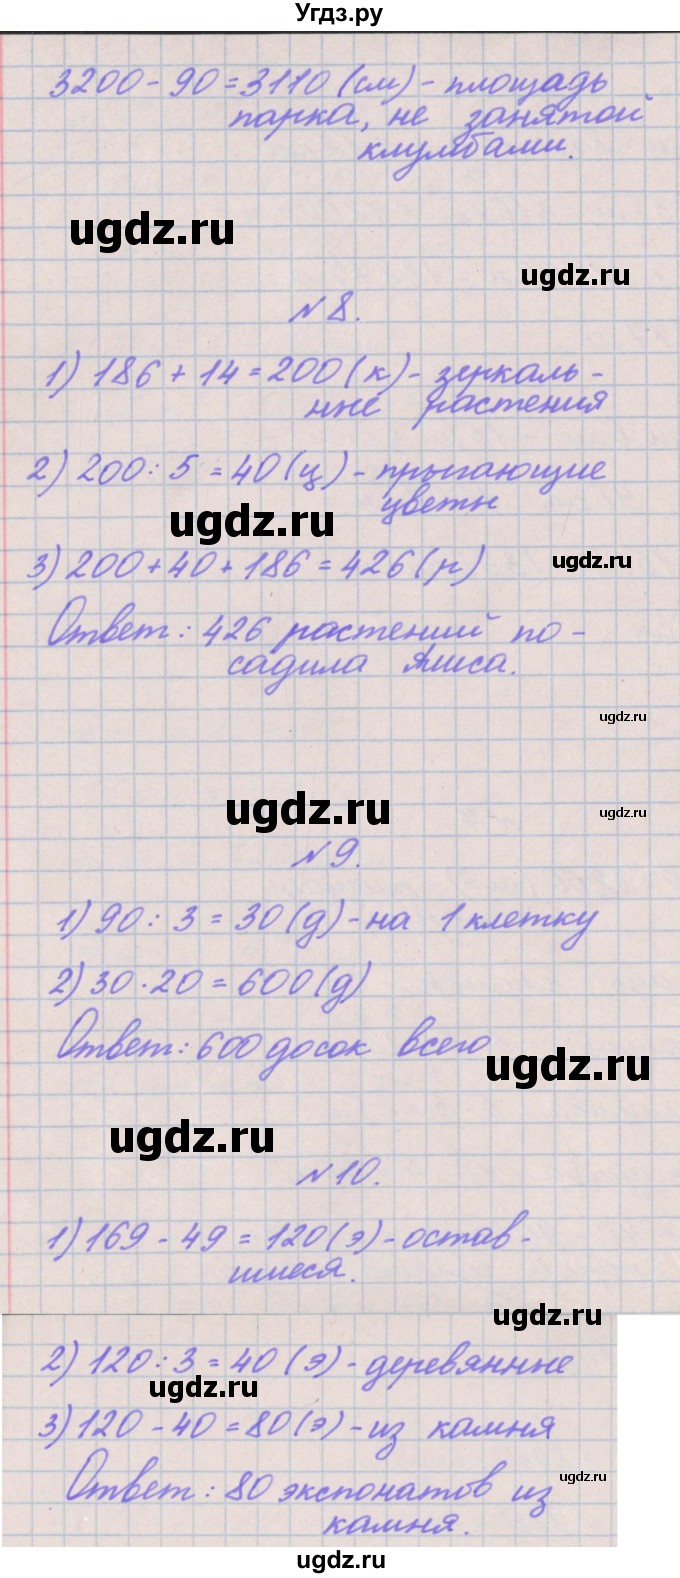 Угдз.ру
3200 - 90 = 3110 (см) - площадь
парка, не занятой
клумбами.
ugdz.ru
ugdz.ru
№ 8.
1) 186 + 14 = 200 (к) - зеркаль -
ные растения
2) 200 : 5 = 40 (ц) - прыгающие
цветы
ugdz.ru
3) 200 + 40 + 186 = 426 (р)
ugdz.ru
Ответ : 426 растений по -
садила Алиса.
ugdz.ru
ugdz.ru
ugdz.ru
№ 9.
1) 90 : 3 = 30 (д) - на 1 клетку
2) 30 · 20 = 600 (д)
Ответ : 600 досок всего
ugdz.ru
ugdz.ru
№ 10.
1) 169 - 49 = 120 (э) - остав -
шиеся.
ugdz.ru
2) 120 : 3 = 40 (э) - деревянные
ugdz.ru
3) 120 - 40 = 80 (э) - из камня
ugdz.ru
Ответ : 80 экспонатов из
камня.
ugdz.ru